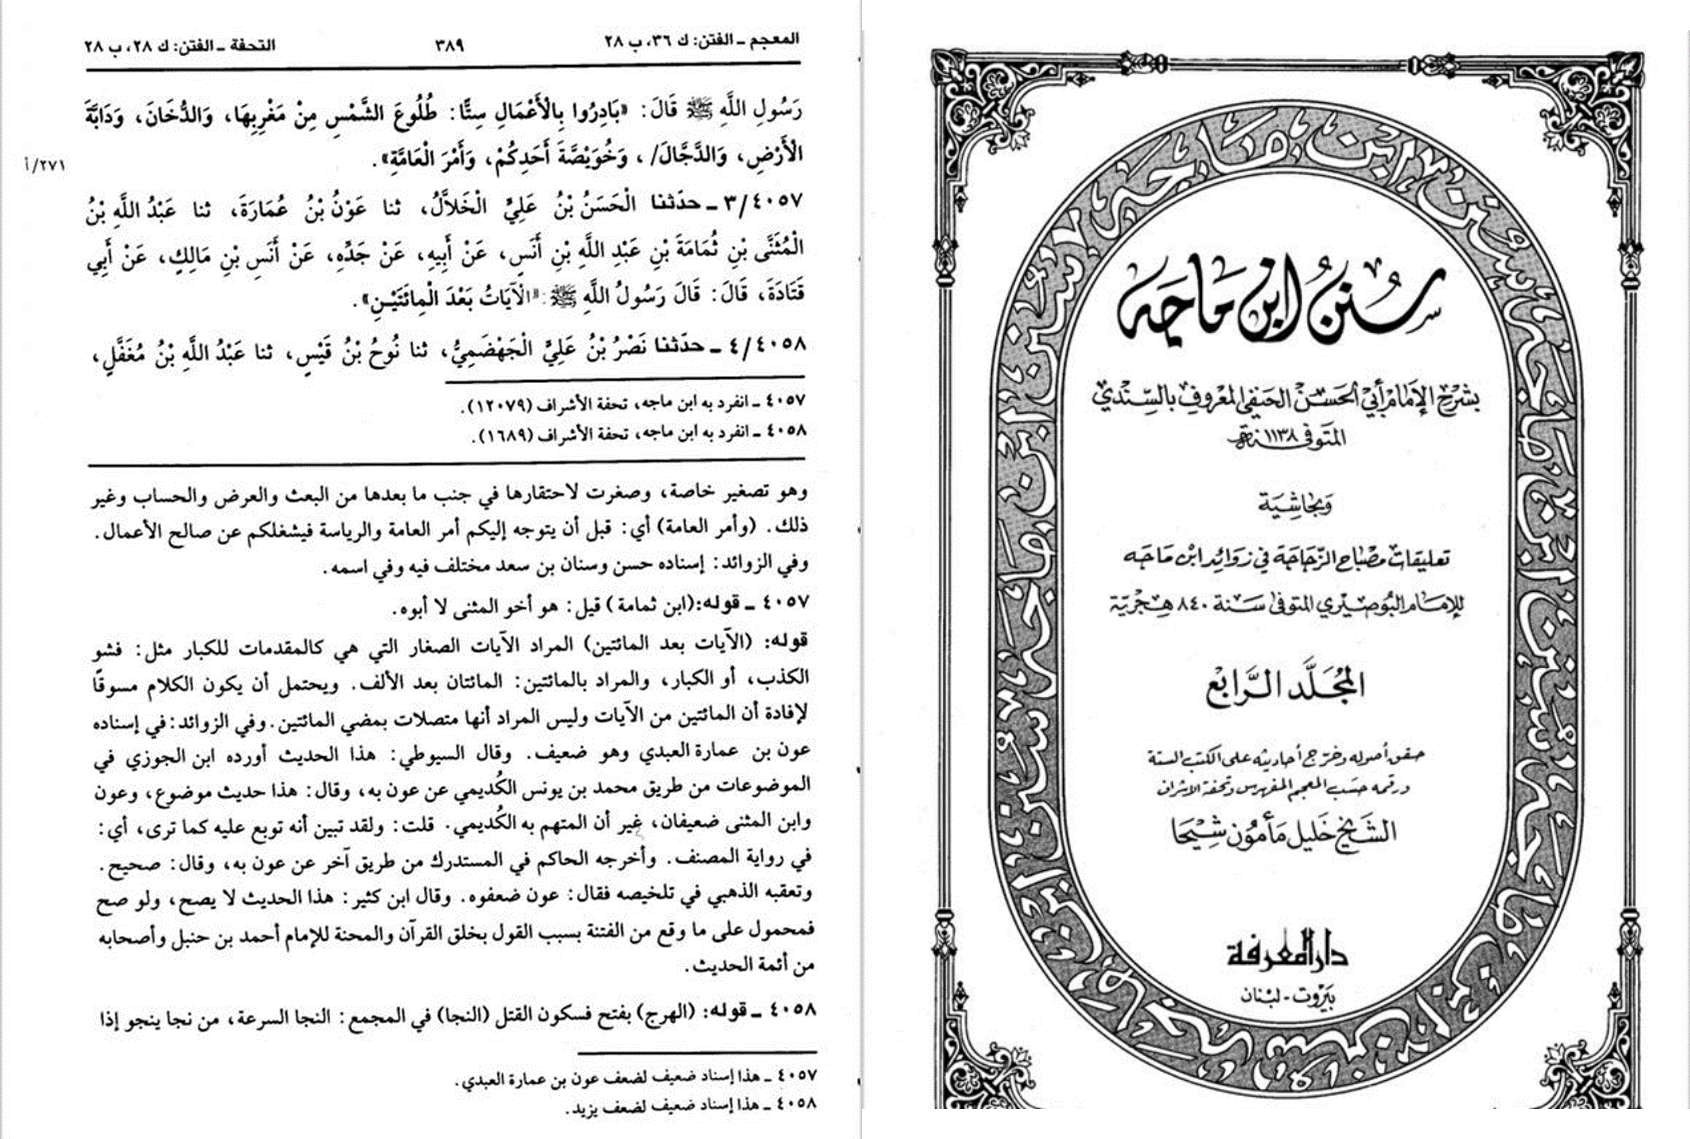 المعجم ـ الفتن: ك ٣٦، ب ٢٨
٣٨٩
التحفة ـ الفتن: ك ٢٨، ب ٢٨
رَسُولِ اللَّهِ ﷺ قَالَ: «بَادِرُوا بِالْأَعْمَالِ سِتًّا: طُلُوعَ الشَّمْسِ مِنْ مَغْرِبِهَا، وَالدُّخَانَ، وَدَابَّةَ
الْأَرْضِ، وَالدَّجَّالَ/ ، وَخُوَيْصَّةَ أَحَدِكُمْ، وَأَمْرَ الْعَامَّةِ».
٢٧١/أ
٣/٤٠٥٧ ـ حدّثنا الْحَسَنُ بْنُ عَلِيٍّ الْخَلاَّلُ، ثنا عَوْنُ بْنُ عُمَارَةَ، ثنا عَبْدُ اللَّهِ بْنُ
الْمُثَنَّى بْنِ ثُمَامَةَ بْنِ عَبْدِ اللَّهِ بْنِ أَنَسٍ، عَنْ أَبِيهِ، عَنْ جَدِّهِ، عَنْ أَنَسِ بْنِ مَالِكٍ، عَنْ أَبِي
قَتَادَةَ، قَالَ: قَالَ رَسُولُ اللَّهِ ﷺ: «الْآيَاتُ بَعْدَ الْمِائَتَيْنِ».
٤/٤٠٥٨ ـ حدّثنا نَصْرُ بْنُ عَلِيٍّ الْجَهْضَمِيُّ، ثنا نُوحُ بْنُ قَيْسٍ، ثنا عَبْدُ اللَّهِ بْنُ مُغَفَّلٍ،
٤٠٥٧ ـ انفرد به ابن ماجه، تحفة الأشراف (١٢٠٧٩).
٤٠٥٨ ـ انفرد به ابن ماجه، تحفة الأشراف (١٦٨٩).
وهو تصغير خاصة، وصغرت لاحتقارها في جنب ما بعدها من البعث والعرض والحساب وغير
ذلك. (وأمر العامة) أي: قبل أن يتوجه إليكم أمر العامة والرياسة فيشغلكم عن صالح الأعمال.
وفي الزوائد: إسناده حسن وسنان بن سعد مختلف فيه وفي اسمه.
٤٠٥٧ ـ قوله:(ابن ثمامة) قيل: هو أخو المثنى لا أبوه.
قوله: (الآيات بعد المائتين) المراد الآيات الصغار التي هي كالمقدمات للكبار مثل: فشو
الكذب، أو الكبار، والمراد بالمائتين: المائتان بعد الألف. ويحتمل أن يكون الكلام مسوقًا
لإفادة أن المائتين من الآيات وليس المراد أنها متصلات بمضي المائتين. وفي الزوائد: في إسناده
عون بن عمارة العبدي وهو ضعيف. وقال السيوطي: هذا الحديث أورده ابن الجوزي في
الموضوعات من طريق محمد بن يونس الكُديمي عن عون به، وقال: هذا حديث موضوع، وعون
وابن المثنى ضعيفان، غير أن المتهم به الكُديمي. قلت: ولقد تبين أنه توبع عليه كما ترى، أي:
في رواية المصنف. وأخرجه الحاكم في المستدرك من طريق آخر عن عون به، وقال: صحيح.
وتعقبه الذهبي في تلخيصه فقال: عون ضعفوه. وقال ابن كثير: هذا الحديث لا يصح، ولو صح
فمحمول على ما وقع من الفتنة بسبب القول بخلق القرآن والمحنة للإمام أحمد بن حنبل وأصحابه
من أئمة الحديث.
٤٠٥٨ ـ قوله: (الهرج) بفتح فسكون القتل (النجا) في المجمع: النجا السرعة، من نجا ينجو إذا
٤٠٥٧ ـ هذا إسناد ضعيف لضعف عون بن عمارة العبدي.
٤٠٥٨ ـ هذا إسناد ضعيف لضعف يزيد.
سُنَنُ ابْنِ مَاجَه
بشرح الإمام أبي الحسن الحنفي المعروف بالسندي
المتوفى سنة ١١٣٨ هـ
وبحاشية
تعليقات مصباح الزجاجة في زوائد ابن ماجه
للإمام البوصيري المتوفى سنة ٨٤٠ هجرية
المجلَّد الرَّابع
حقق أصوله وخرّج أحاديثه على الكتب الستة
ورقمه حسب المعجم المفهرس وتحفة الأشراف
الشيخ خليل مأمون شيحا
دار المعرفة
بيروت - لبنان